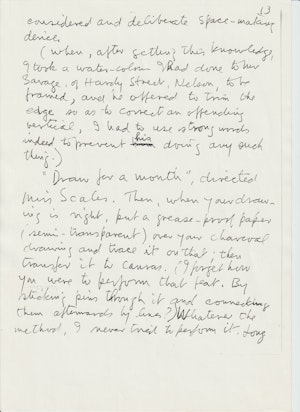 13
considered and deliberate space-making
device.
(When, after getting this knowledge,
I took a water-colour I had done to Mr
Savage, of Hardy Street, Nelson, to be
framed, and he offered to trim the
edge so as to correct an offending
vertical, I had to use strong words
indeed to prevent his doing any such
thing.)
"Draw for a month", directed
Miss Scales. Then, when your draw-
ing is right, put a grease-proof paper
(semi-transparent) over your charcoal
drawing and trace it on that; then
transfer it to canvas. (I forget how
you were to perform that feat. By
sticking pins through it and connecting
them afterwards by lines?) Whatever the
method, I never tried to perform it. Long